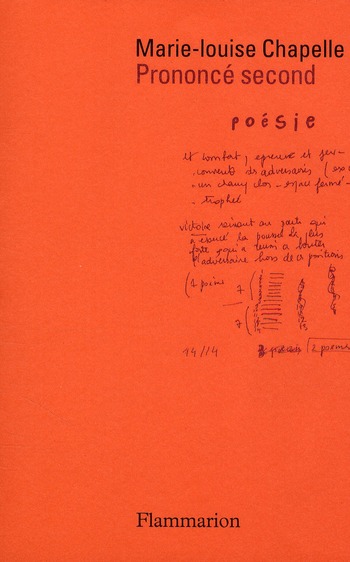 Marie-louise Chapelle
Prononcé second
poésie
et combat, épreuve et
des adversaires
un champ clos - espace fermé -
trophée
victoire au parti qui
a exercé la poussée la plus
forte qui a réussi à bouter
l'adversaire hors de positions
(2 poème 7
7
14/14 2 poèmes
Flammarion